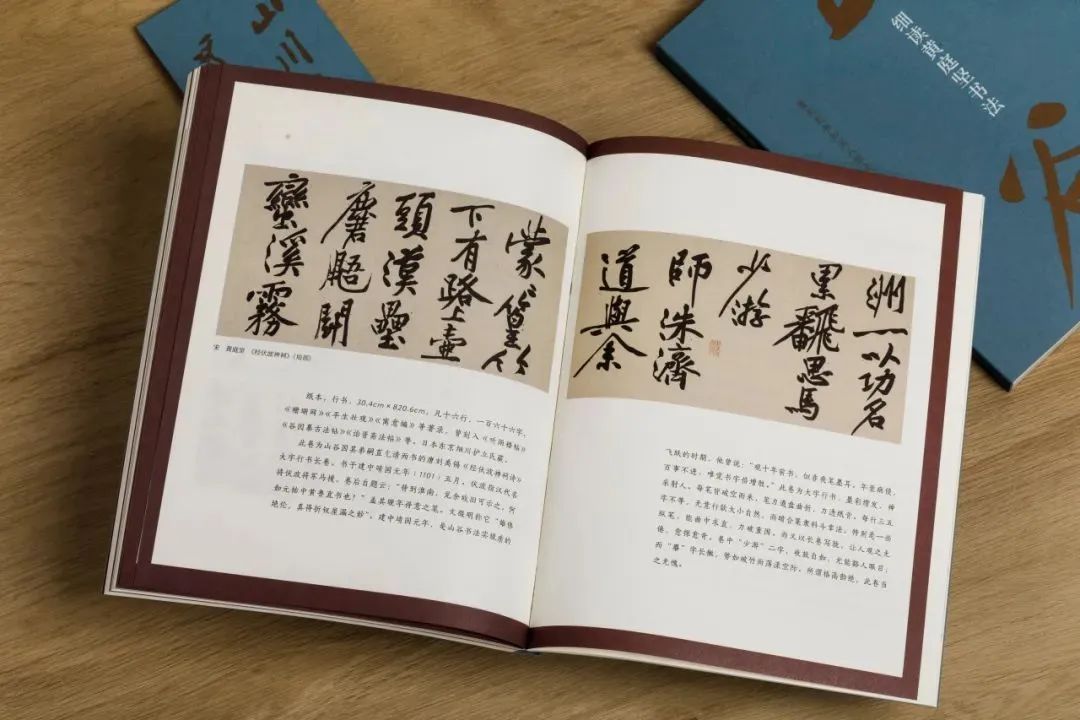 山川
细读黄庭坚书法
蒙〻篁竹
下有路上壺
頭漢壘
麏鼯鬭
蠻溪霧
宋 黄庭坚 《经伏波神祠》(局部)
纸本，行书，30.4cm×820.6cm，凡十六行，一百六十六字，
《珊瑚网》《平生壮观》《寓意编》等著录，曾刻入《听雨楼帖》
《谷园摹古法帖》《治晋斋法帖》等。日本东京细川护立氏藏。
此卷为山谷因其弟嗣直乞请而书的唐刘禹锡《经伏波神祠诗》
大字行书长卷。书于建中靖国元年（1101）五月，伏波指汉代名
将伏波将军马援。卷后自题云：“持到淮南，见余故旧可示之，何
如元祐中黄鲁直书也？”盖其晚年得意之笔。文徵明称它“雄伟
绝伦，真得折钗屋漏之妙”。建中靖国元年，是山谷书法实现质的
洲一以功名
累飜思馬
少游
師洙濟
道與余
飞跃的时期。他曾说：“观十年前书，似非我笔墨耳。年衰病侵，
百事不进，唯觉书字倍增胜。”此卷为大字行书，墨彩焕发，神
采射人。每笔皆破空而来，笔力遒盘曲折，力透纸背。每行三五
字不等，无意行款大小自然，
纵笔，能曲中求直，力破重围。而又以长卷写就，让人观之无
倦，愈探愈奇。卷中“少游”二字，收放自如，光能豁人眼目；
字长撇，势如破竹而荡漾空际。所谓格高韵绝，此卷当
之无愧。